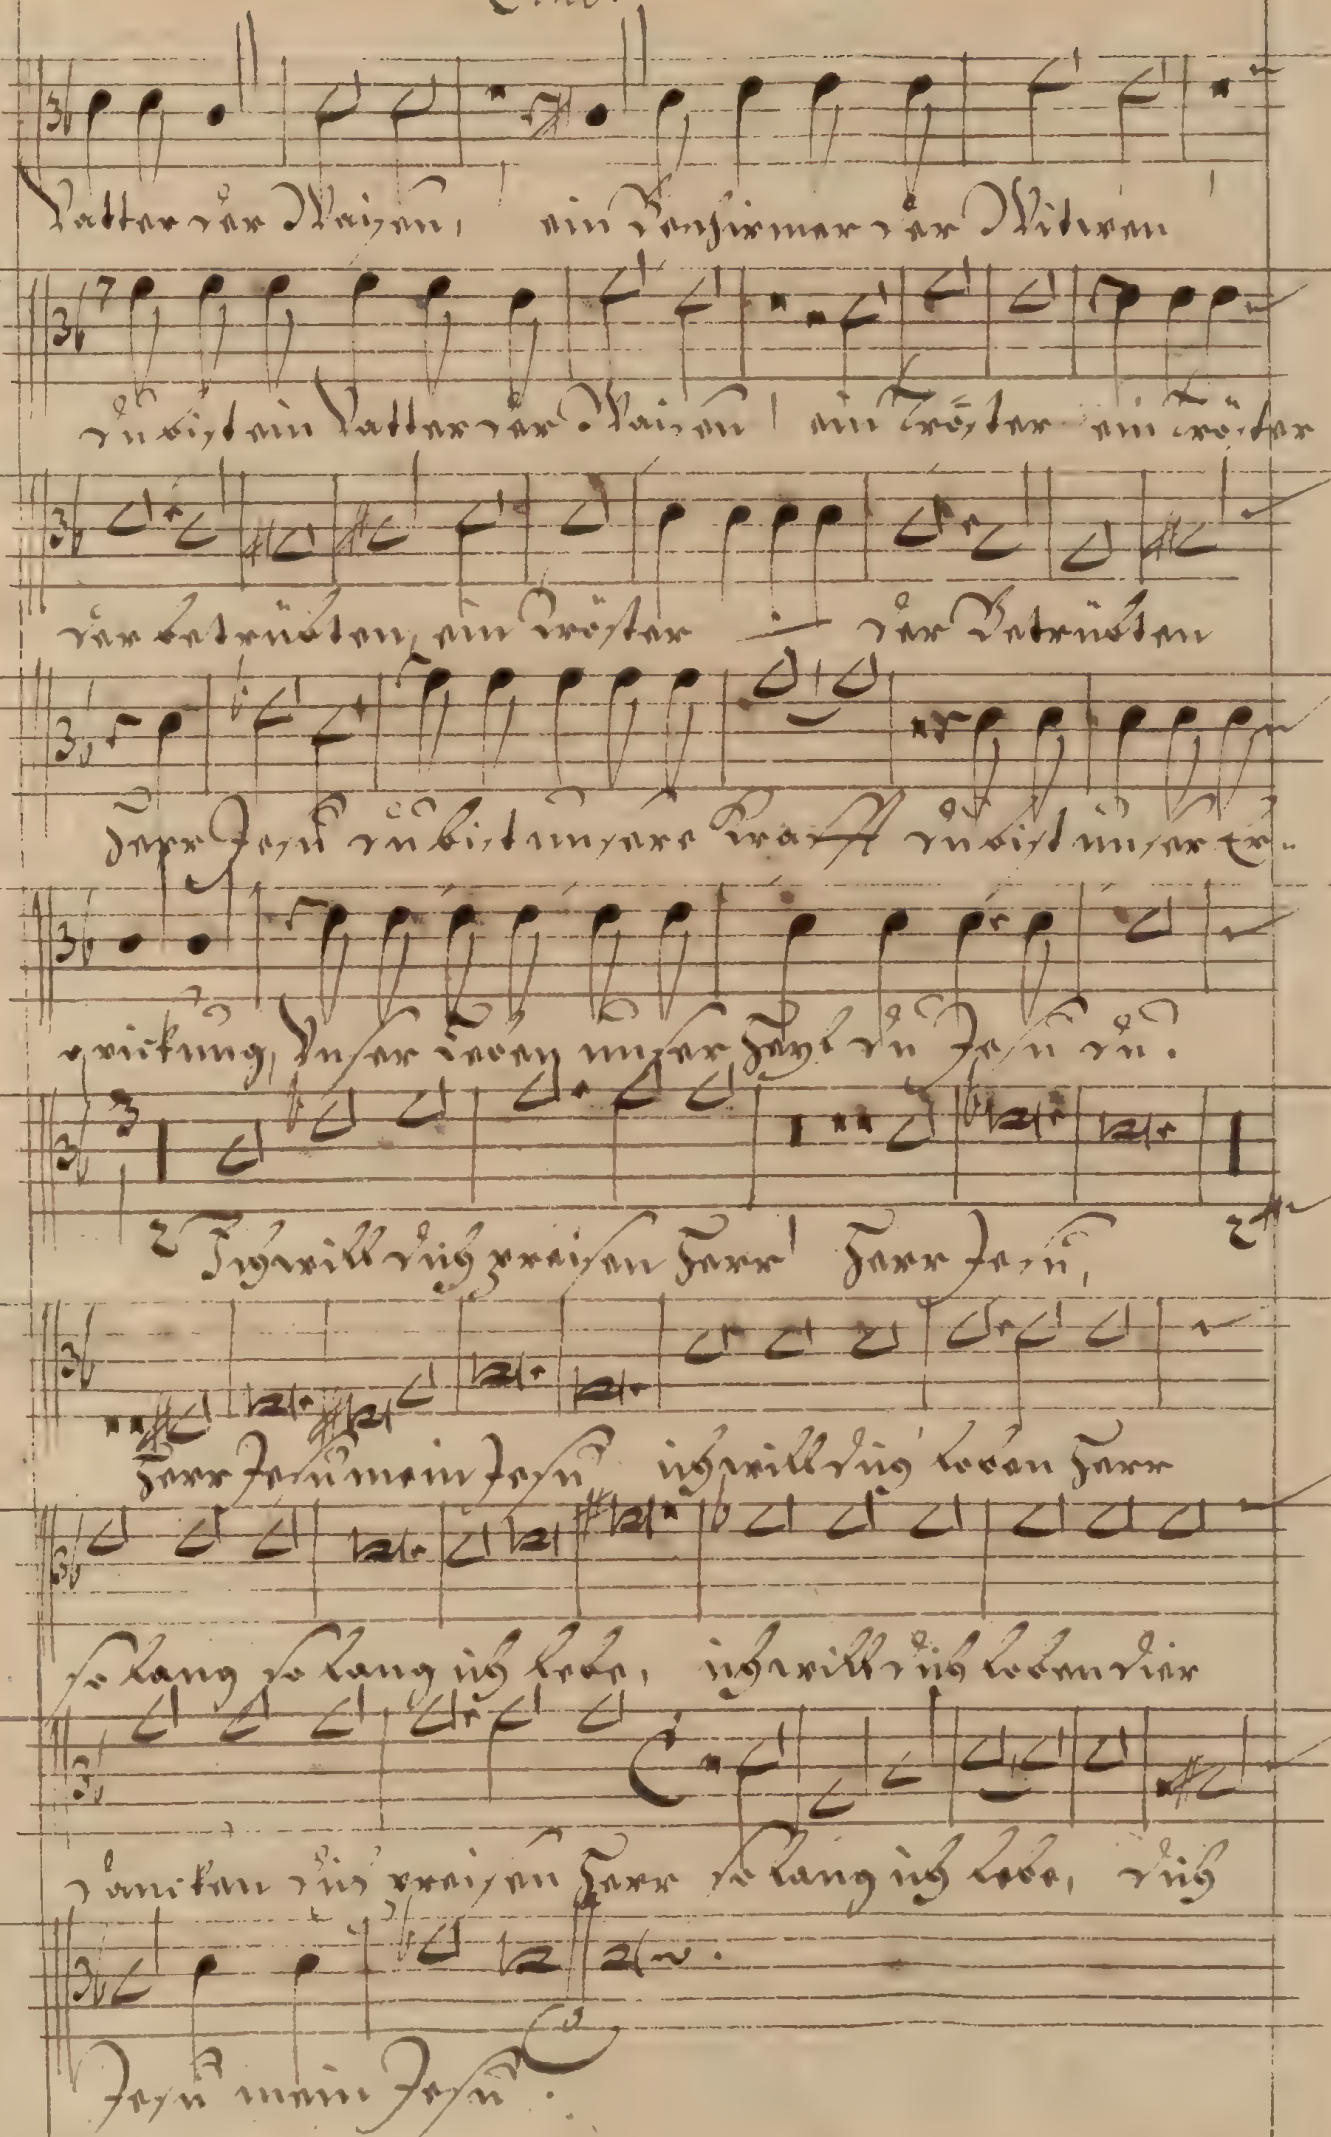 Vatter der Waisen, ein Beschirmer der Witwen
du bist ein Vatter der Waisen ein Tröster ein Tröster
der betrübten, ein Tröster der Betrübten
Herr Jesu du bist unsere Krafft du bist unser Er-
quickung, Unser Leben unser Heyl du Jesu du.
Ich will dich preisen Herr Herr Jesu,
Herr Jesu mein Jesu ich will dich loben Herr
so lang so lang ich lebe, ich will dich loben dier
dancken dich preisen Herr so lang ich lebe, dich
Jesu mein Jesu.